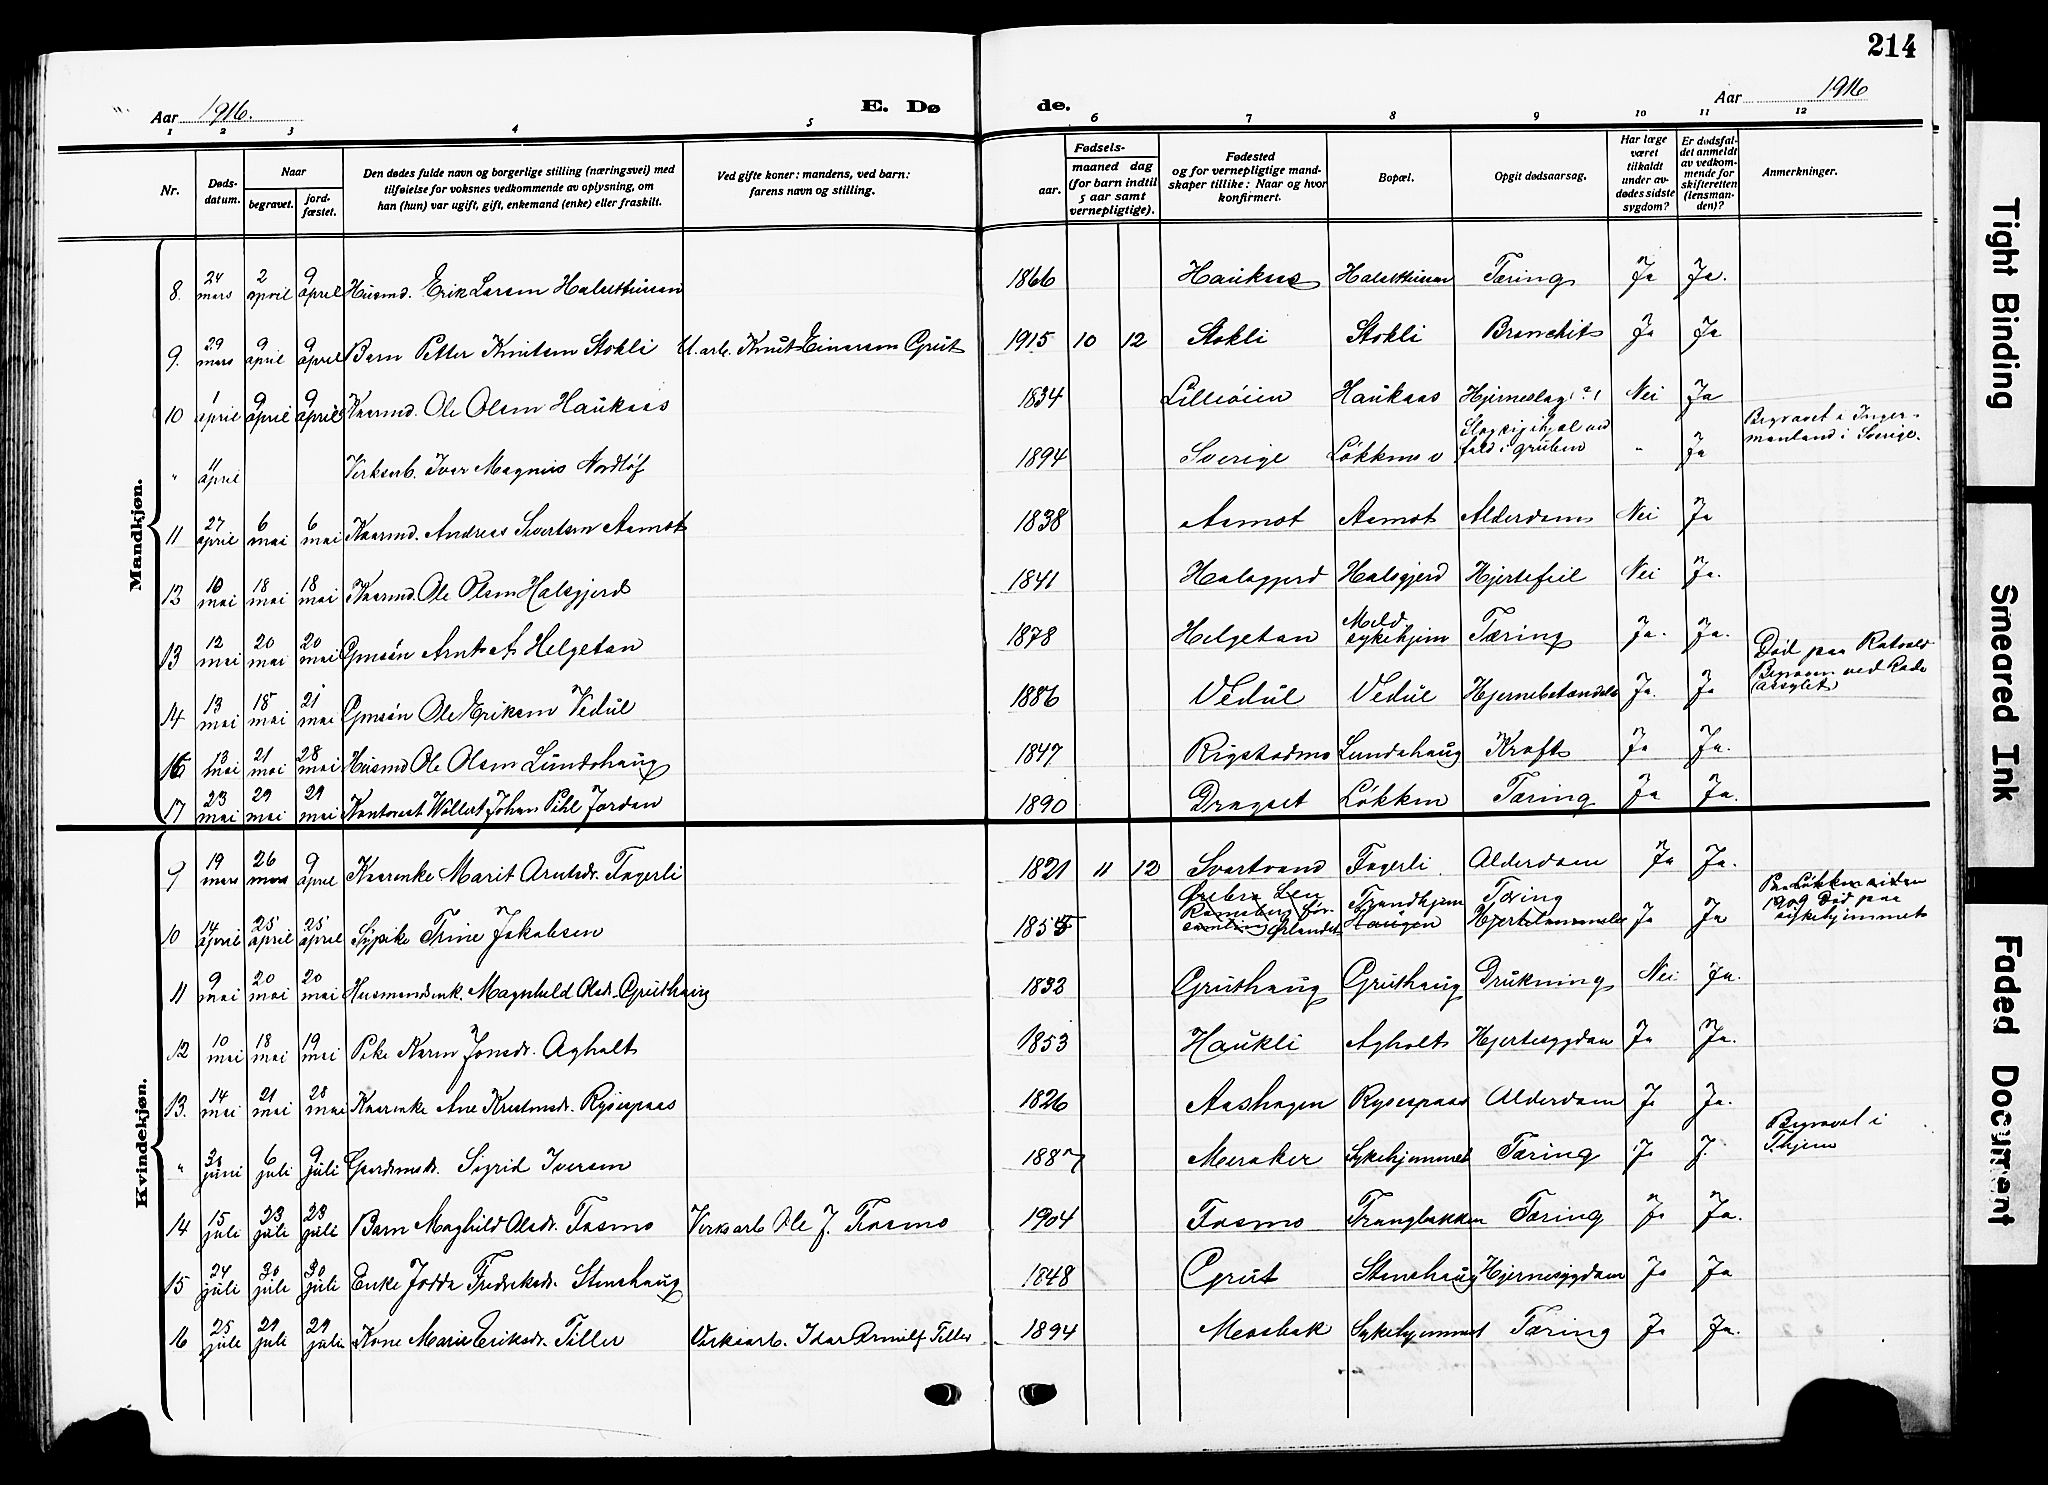 214
Aar 1916. E. Dø de. Aar 1916
1 2 3 4 5 6 7 8 9 10 11 12
Nr. Døds-datum. Naar begravet. jord-fæstet. Den dødes fulde navn og borgerlige stilling (næringsvei) med tilføielse for voksnes vedkommende av oplysning, om han (hun) var ugift, gift, enkemand (enke) eller fraskilt. Ved gifte koner: mandens, ved barn: farens navn og stilling. Fødsels- aar. maaned dag (for barn indtil 5 aar samt vernepligtige). Fødested og for vernepligtige mand-skaper tillike: Naar og hvor konfirmert. Bopæl. Opgit dødsaarsag. Har læge været tilkaldt under av-dødes sidste sygdom? Er dødsfal-det anmeldt av vedkom-mende for skifteretten (lensman-den)? Anmerkninger.
Mandkjøn.
8. 24 mars 2 april 9 april Husmd. Erik Larsen Halsethusan 1866 Haukaas Halsethusan Tæring Ja Ja.
9. 29 mars 9 april 9 april Barn Petter Knutsen Stokli U. arb. Knut Einarsen Grut 1915 10 12 Stokli Stokli Bronchit Ja Ja
10 1 april 9 april 9 april Kaarmd. Ole Olsen Haukaas 1834 Lilleøien Haukaas Hjerneslag (?) Nei Ja
" 11 april Verksarb. Ivar Magnus Nordlöf 1894 Sverige Løkken v Slag sig ihjel ved fald i gruben " Ja Begravet i Inger-manland i Sverige.
11 27 april 6 mai 6 mai Kaarmd. Andreas Sivertsen Aamot 1838 Aamot Aamot Alderdom Nei Ja
12 10 mai 18 mai 18 mai Kaarmd. Ole Olsen Halsgjerd 1841 Halsgjerd Halsgjerd Hjertefeil Nei Ja.
13 12 mai 20 mai 20 mai Gmsøn Arnt A Helgetun 1878 Helgetun Meld. sykehjem Tæring Ja. Ja.
14 13 mai 18 mai 21 mai Gmsøn Ole Eriksen Vedul 1886 Vedul Vedul Hjernebetændelse Ja. Ja Død paa Rotvold Begraven ved Rode asylet
16 13 mai 21 mai 28 mai Husmd Ole Olsen Lundshaug 1847 Rigstadmo Lundshaug Kræft Ja Ja.
17 23 mai 29 mai 29 mai Kontorist Wollert Johan Pihl Jordan 1890 Dragset Løkken Tæring Ja Ja.
Kvindekjøn.
9 19 mars 26 mars 9 april Kaarenke Marit Arntsdr. Fagerli 1821 11 12 Svartvand Fagerli Alderdom Ja Ja.
10 14 april 25 april 25 april Sypike Trine Jakobsen 1855 Ørebro Len Ramsberg för-samling Ørlandet Trondhjem Haugen Tæring Hjertelammelse Ja Ja Paa Løkken siden 1909 Død paa sykehjemmet
11 9 mai 20 mai 20 mai Husmandsenk. Magnhild Olsdr. Gruthaug 1832 Gruthaug Gruthaug Drukning Nei Ja.
12 10 mai 18 mai 19 mai Pike Karen Jonsdr. Agholt 1853 Haukli Agholt Hjertesygdom Ja Ja.
13. 14 mai 21 mai 28 mai Kaarenke Ane Kristensdr. Rysespaas 1826 Aashagen Rysespaas Alderdom Ja Ja.
" 30 juni 6 juli 9 juli Gaardmsdr. Sigrid Iversen 1887 Meraker Sykehjemmet Tæring Ja J. Begravet i Thjem
14 15 juli 23 juli 23 juli Barn Maghild Olsdr. Fosmo Verksarb Ole J. Fosmo 1904 Fosmo Trangbakken Tæring Ja Ja.
15 24 juli 30 juli 30 juli Enke Jodda Fredriksdr. Stenshaug 1848 Grut Stenshaug Hjernesygdom Ja Ja
16 25 juli 29 juli 29 juli Kone Marie Eriksdr. Tiller Verksarb. Idar Arnulf Tiller 1894 Mosbak Sykehjemmet Tæring Ja Ja.
Tight Binding
Smeared Ink
Faded Document